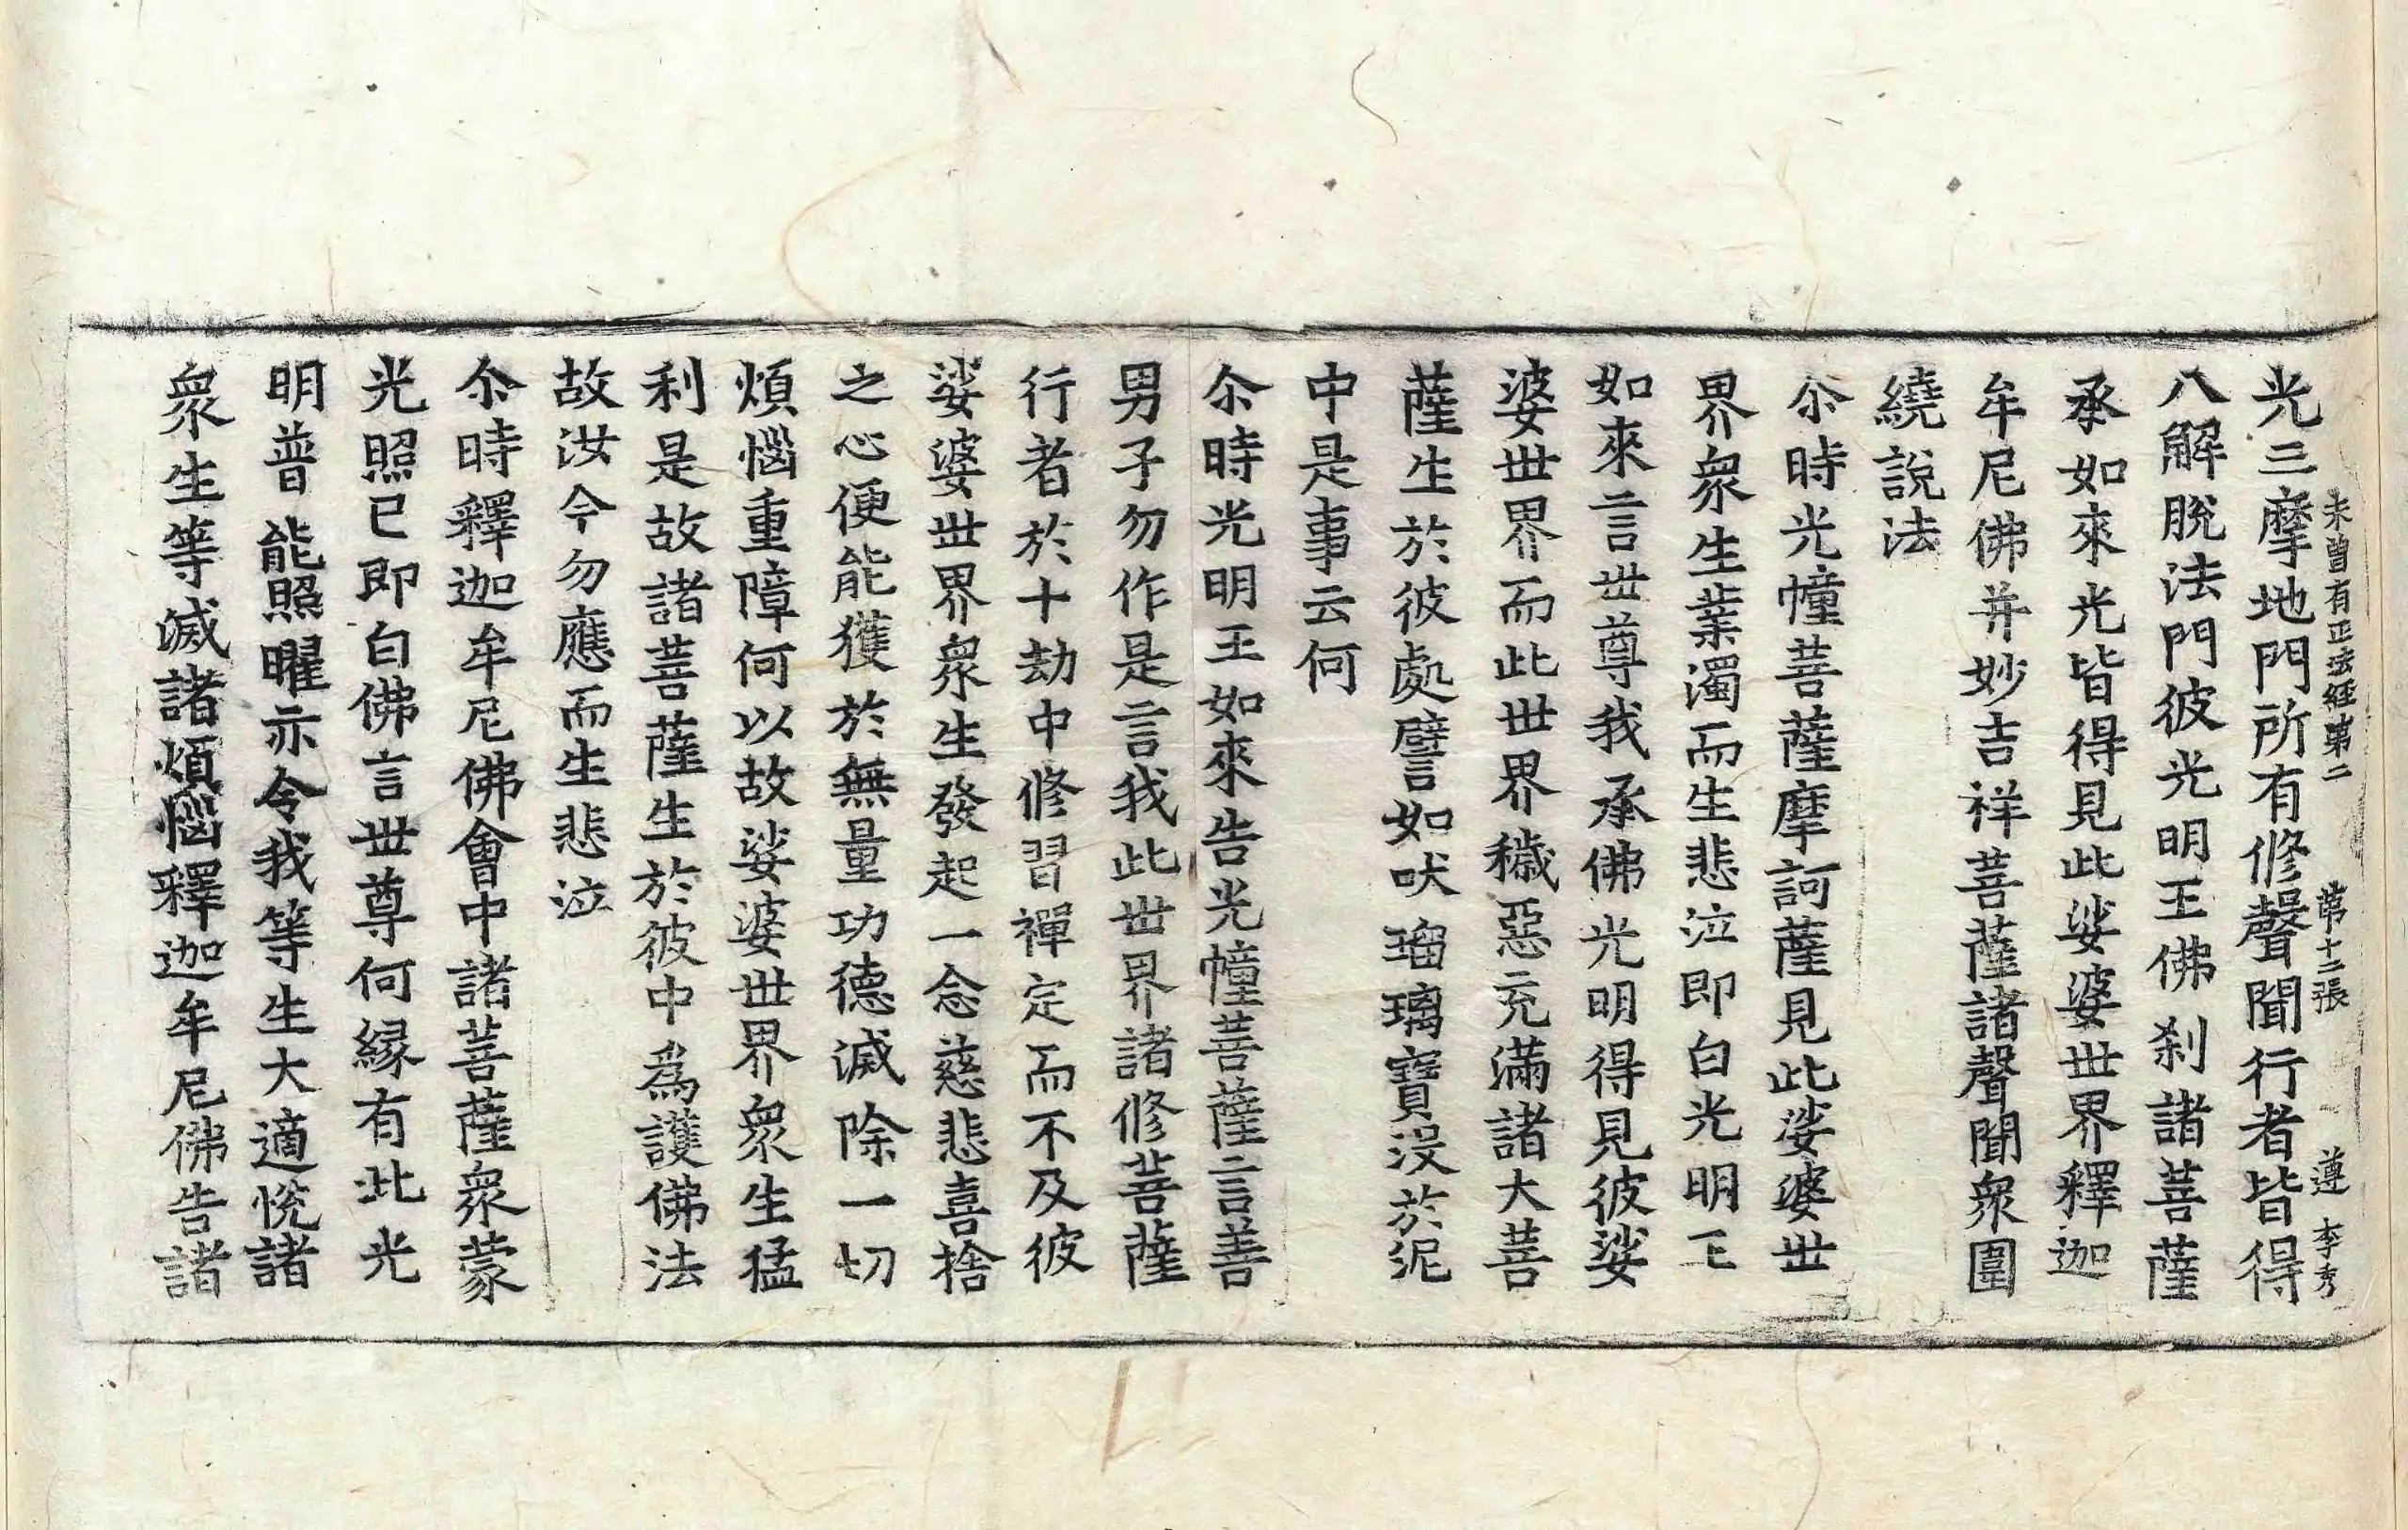 未曾有正法經第二　第十二張　遵　李秀
光三摩地門所有修聲聞行者皆得
八解脫法門彼光明王佛刹諸菩薩
承如來光皆得見此娑婆世界釋迦
牟尼佛并妙吉祥菩薩諸聲聞衆圍
繞說法
尒時光幢菩薩摩訶薩見此娑婆世
界衆生業濁而生悲泣即白光明王
如來言世尊我承佛光明得見彼娑
婆世界而此世界穢惡充滿諸大菩
薩生於彼處譬如吠瑠璃寶没於泥
中是事云何
尒時光明王如來告光幢菩薩言善
男子勿作是言我此世界諸修菩薩
行者於十劫中修習禪定而不及彼
娑婆世界衆生發起一念慈悲喜捨
之心便能獲於無量功德滅除一切
煩惱重障何以故娑婆世界衆生猛
利是故諸菩薩生於彼中爲護佛法
故汝今勿應而生悲泣
尒時釋迦牟尼佛會中諸菩薩衆蒙
光照已即白佛言世尊何緣有此光
明普能照曜亦令我等生大適悅諸
衆生等滅諸煩惱釋迦牟尼佛告諸